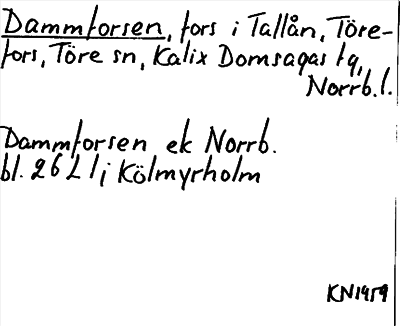 Dammforsen, fors i Tallån, Töre-
fors, Töre sn, Kalix Domsagas tg,
Norrb.l.
Dammforsen ek Norrb.
bl. 26 L 1 i Kölmyrholm
KN1959